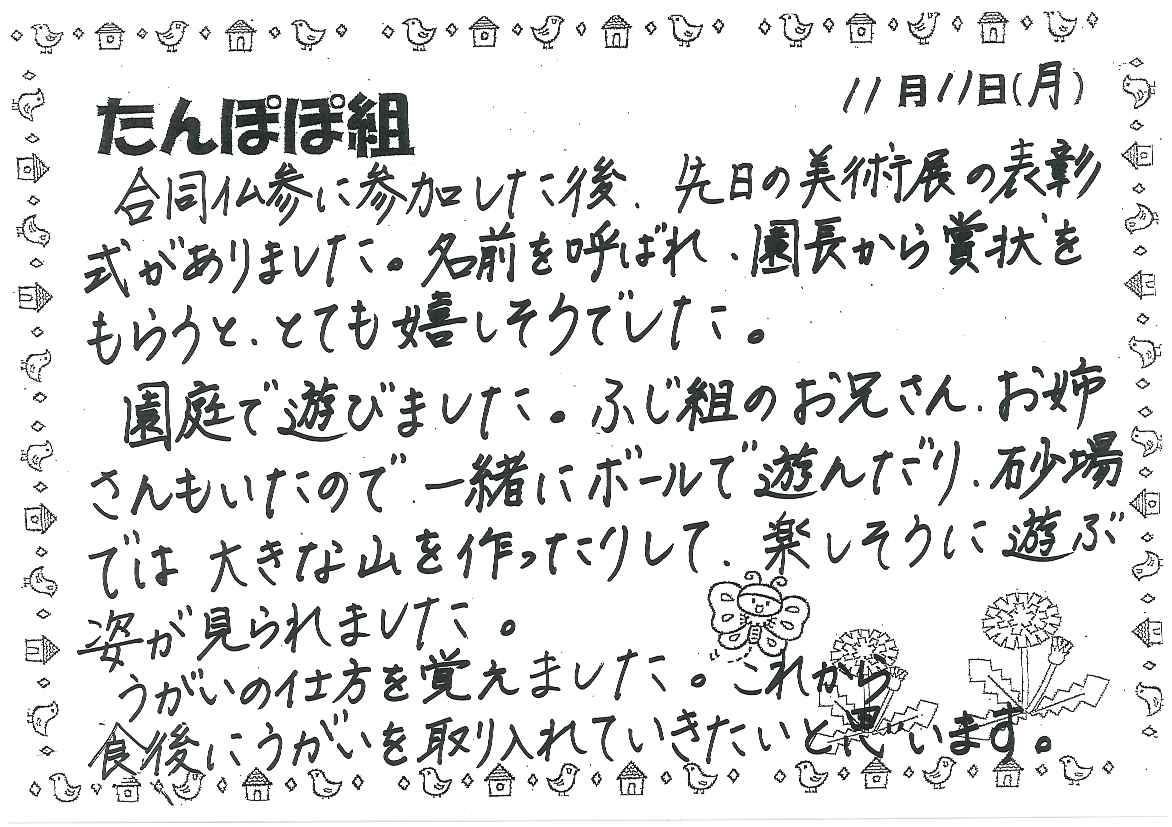 11月11日(月)
たんぽぽ組
合同仏参に参加した後、先日の美術展の表彰
式がありました。名前を呼ばれ、園長から賞状を
もらうと、とても嬉しそうでした。
園庭で遊びました。ふじ組のお兄さん、お姉
さんもいたので、一緒にボールで遊んだり、砂場
では大きな山を作ったりして、楽しそうに遊ぶ
姿が見られました。
うがいの仕方を覚えました。これから
食後にうがいを取り入れていきたいと思います。